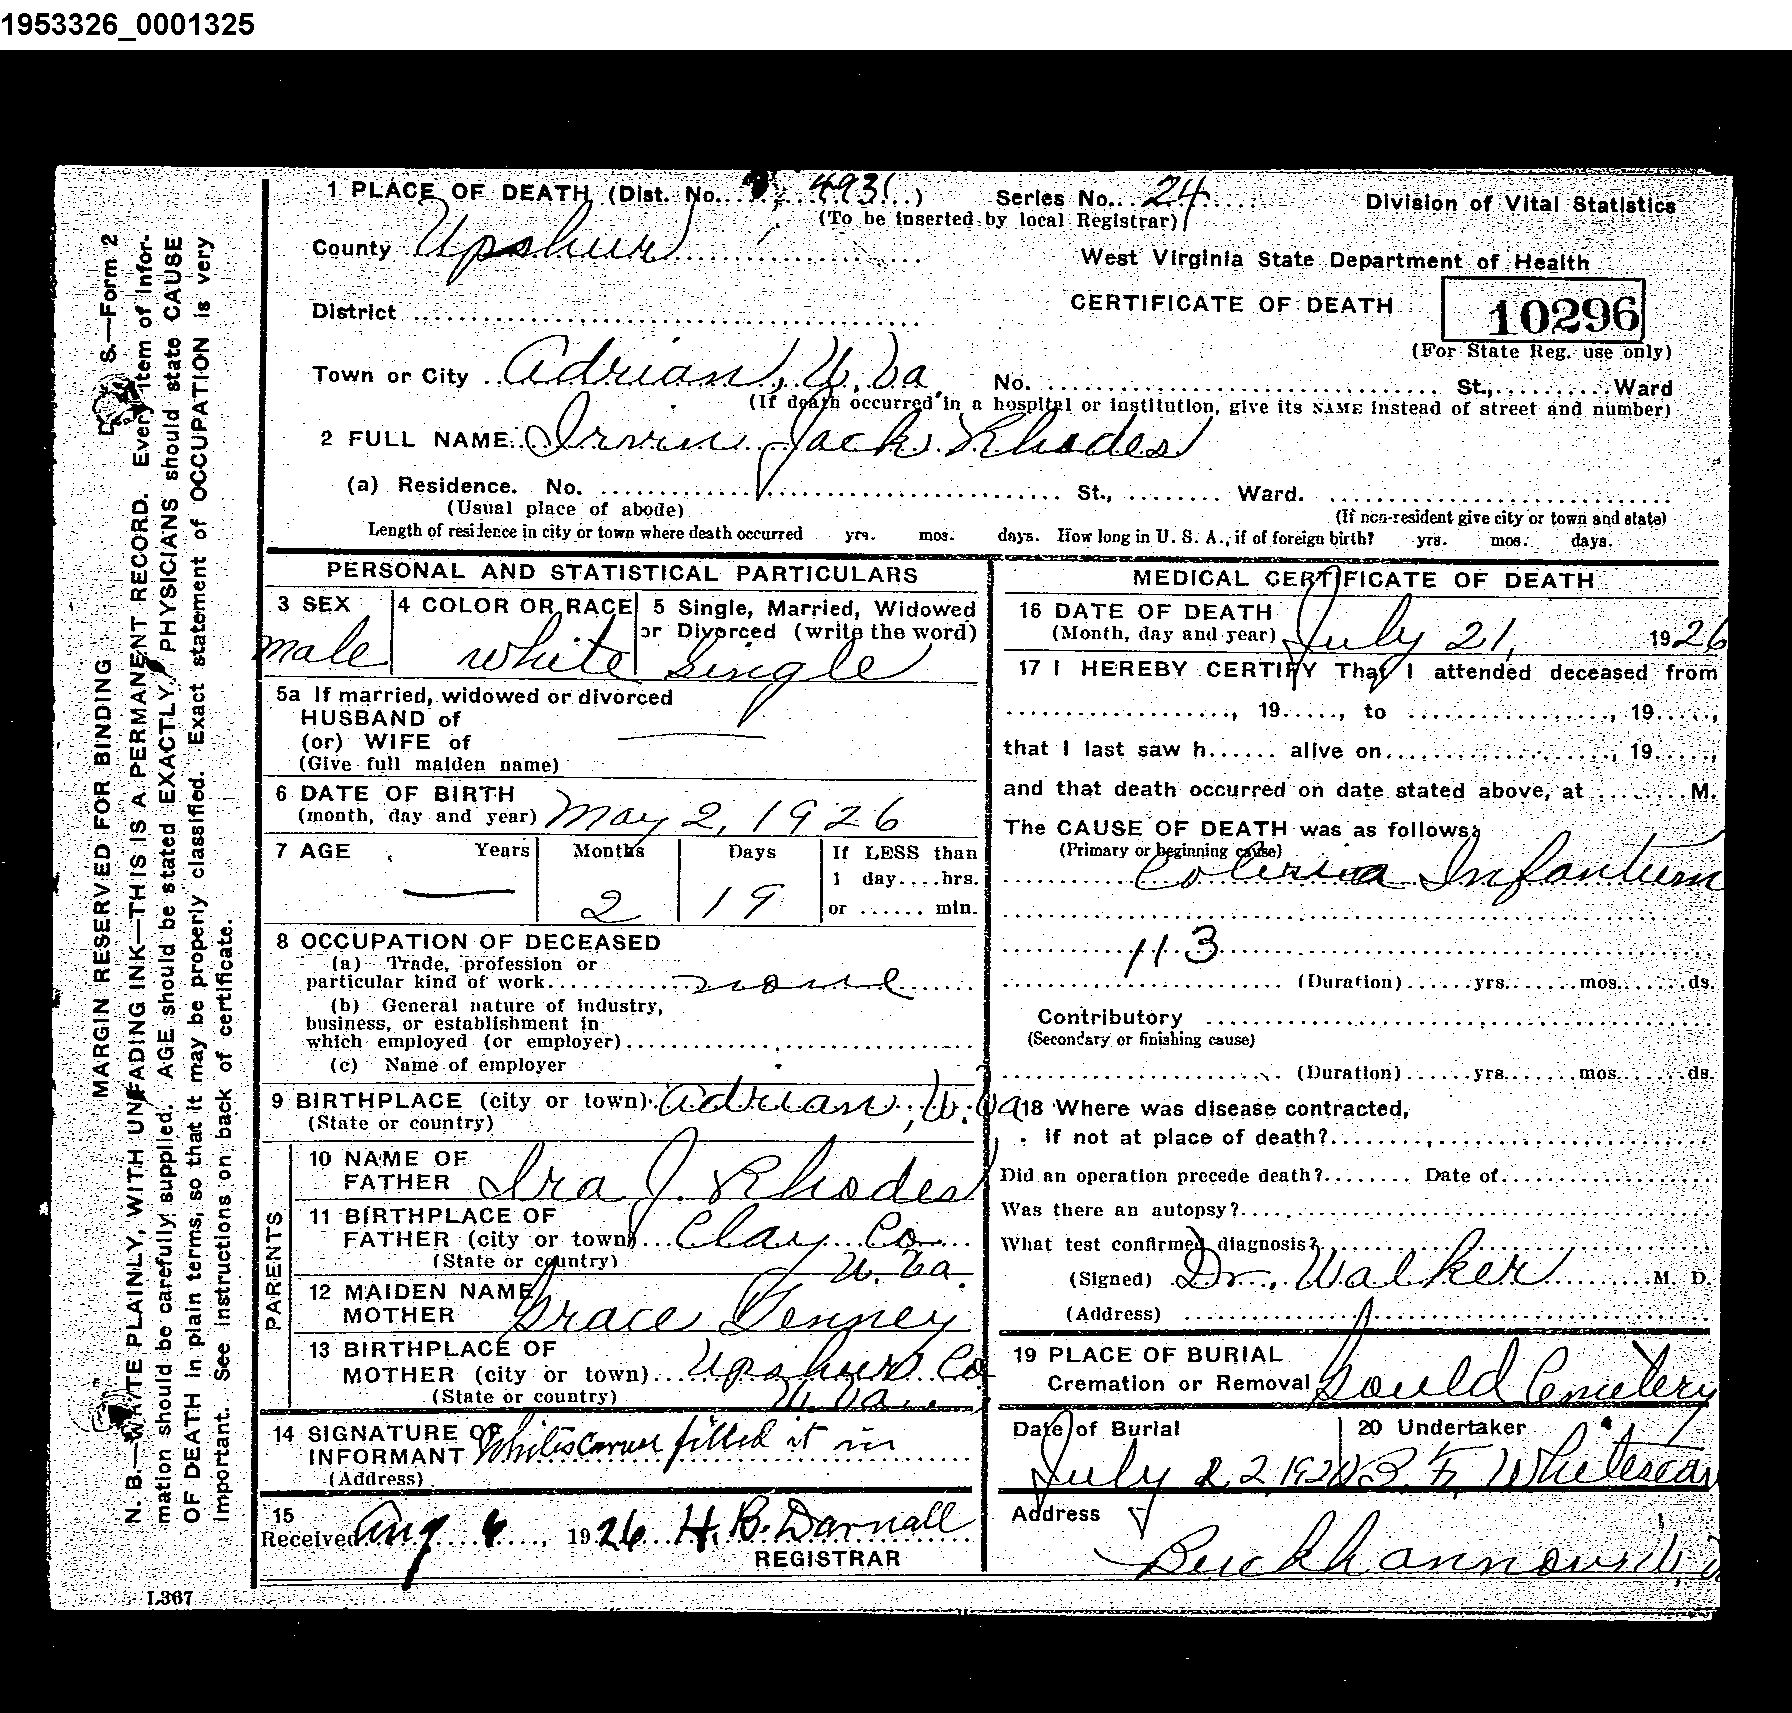 1953326_0001325
1 PLACE OF DEATH (Dist. No. 4931)
Series No. 24
(To be inserted by local Registrar)
Division of Vital Statistics
County Upshur
West Virginia State Department of Health
District
CERTIFICATE OF DEATH
10296
(For State Reg. use only)
Town or City Adrian, W. Va
No. St., Ward
(If death occurred in a hospital or institution, give its NAME instead of street and number)
2 FULL NAME Irvin Jack Rhodes
(a) Residence. No. St., Ward.
(Usual place of abode)
(If non-resident give city or town and state)
Length of residence in city or town where death occurred yrs. mos. days. How long in U. S. A., if of foreign birth? yrs. mos. days.
PERSONAL AND STATISTICAL PARTICULARS
3 SEX
male
4 COLOR OR RACE
white
5 Single, Married, Widowed
or Divorced (write the word)
Single
5a If married, widowed or divorced
HUSBAND of
(or) WIFE of
(Give full maiden name)
6 DATE OF BIRTH
(month, day and year) May 2, 1926
7 AGE Years Months Days If LESS than
1 day....hrs.
or ...... min.
— 2 19
8 OCCUPATION OF DECEASED
(a) Trade, profession or
particular kind of work none
(b) General nature of industry,
business, or establishment in
which employed (or employer)
(c) Name of employer
9 BIRTHPLACE (city or town) Adrian, W. Va
(State or country)
PARENTS
10 NAME OF
FATHER Ira J. Rhodes
11 BIRTHPLACE OF
FATHER (city or town) Clay Co
(State or country) W. Va.
12 MAIDEN NAME
MOTHER Grace Tenney
13 BIRTHPLACE OF
MOTHER (city or town) Upshur Co
(State or country) W. Va.
14 SIGNATURE OF
INFORMANT Whitescarver filled it in
(Address)
15
Received Aug 6, 1926 H. B. Darnall
REGISTRAR
L367
MEDICAL CERTIFICATE OF DEATH
16 DATE OF DEATH
(Month, day and year) July 21, 1926
17 I HEREBY CERTIFY That I attended deceased from
, 19....., to , 19.....,
that I last saw h...... alive on , 19.....,
and that death occurred on date stated above, at M.
The CAUSE OF DEATH was as follows:
(Primary or beginning cause)
Colerina Infantum
113
(Duration) yrs. mos. ds.
Contributory
(Secondary or finishing cause)
(Duration) yrs. mos. ds.
18 Where was disease contracted,
if not at place of death?
Did an operation precede death? Date of
Was there an autopsy?
What test confirmed diagnosis?
(Signed) Dr. Walker M. D.
(Address)
19 PLACE OF BURIAL
Cremation or Removal Gould Cemetery
Date of Burial
July 22, 1926
20 Undertaker
Whitescar
Address
Buckhannon, W. Va
MARGIN RESERVED FOR BINDING
S.—Form 2
N. B.—WRITE PLAINLY, WITH UNFADING INK—THIS IS A PERMANENT RECORD. Every item of infor-
mation should be carefully supplied. AGE should be stated EXACTLY. PHYSICIANS should state CAUSE
OF DEATH in plain terms, so that it may be properly classified. Exact statement of OCCUPATION is very
important. See instructions on back of certificate.